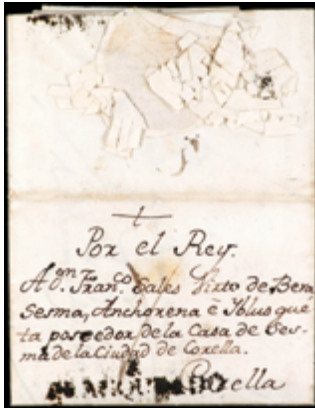 Por el Rey.
A dⁿ. Franᶜᵒ. Sales Sixto de Bera
Sesma, Anchorena è Yblusqué
ta poseedor de la Casa de Ses-
ma de la Ciudad de Corella.
Corella